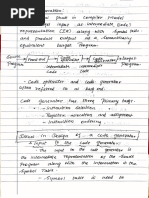 The final phase in compiler model
representation (IR) along with symbol table
and produces output as a semantically
equivalent target
Program.
Source
Program
Front end
Code
optimizer
Code
generator
target
Program
intermediate
Code
intermediate
Code
- Code optimizer and code generator
often referred to as back end.
Code generator has three primary tasks:
- Instruction selection
- Register allocation and assignment
- Instruction ordering
Issues in Design of a code generator
Input to the code generator
The input to the code generator is
the intermediate representation of the source
Program along with the information in the
Symbol Table.
- Symbol table is used to